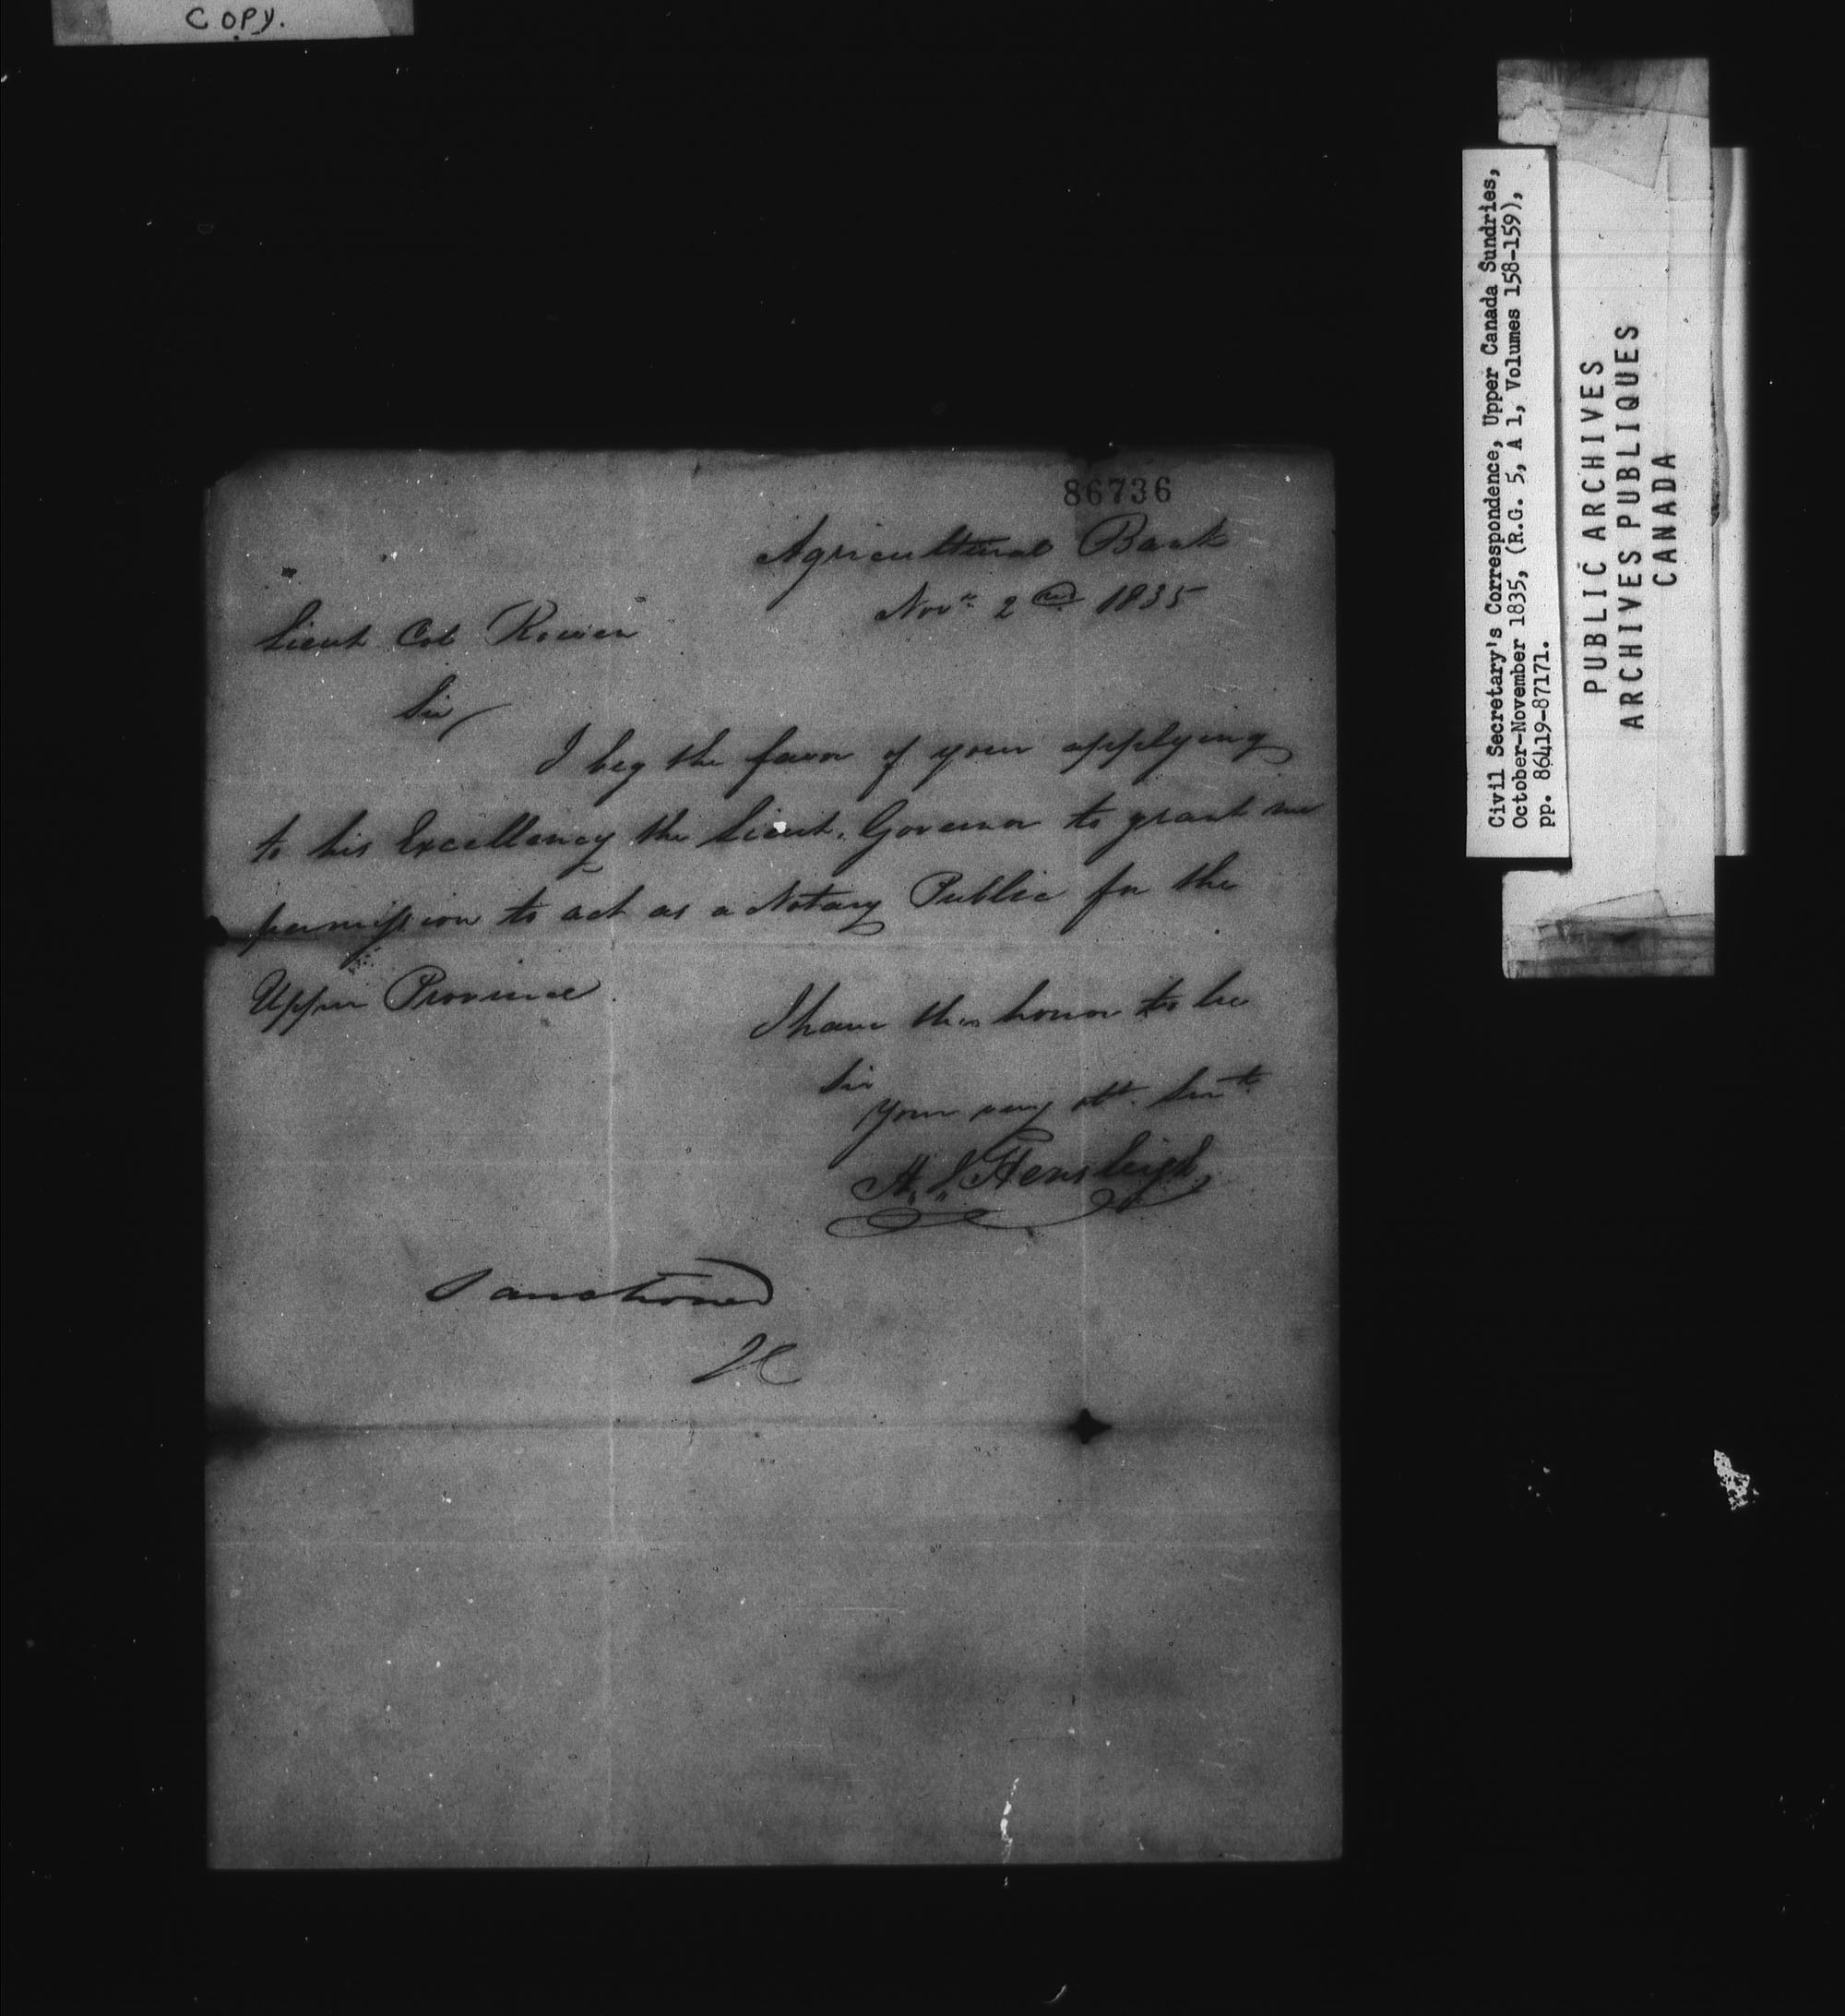 COPY.
86736
Agricultural Bank
Novr. 2nd 1835
Lieut Col Rowan
Sir,
I beg the favor of your applying
to his Excellency the Lieut. Governor to grant me
permission to act as a Notary Public for the
Upper Province.
I have the honor to be
Sir
Your very obt. Servt.
Hensleigh
Sanctioned
JC
Civil Secretary's Correspondence, Upper Canada Sundries,
October-November 1835, (R.G. 5, A 1, Volumes 158-159),
pp. 86419-87171.
PUBLIC ARCHIVES
ARCHIVES PUBLIQUES
CANADA